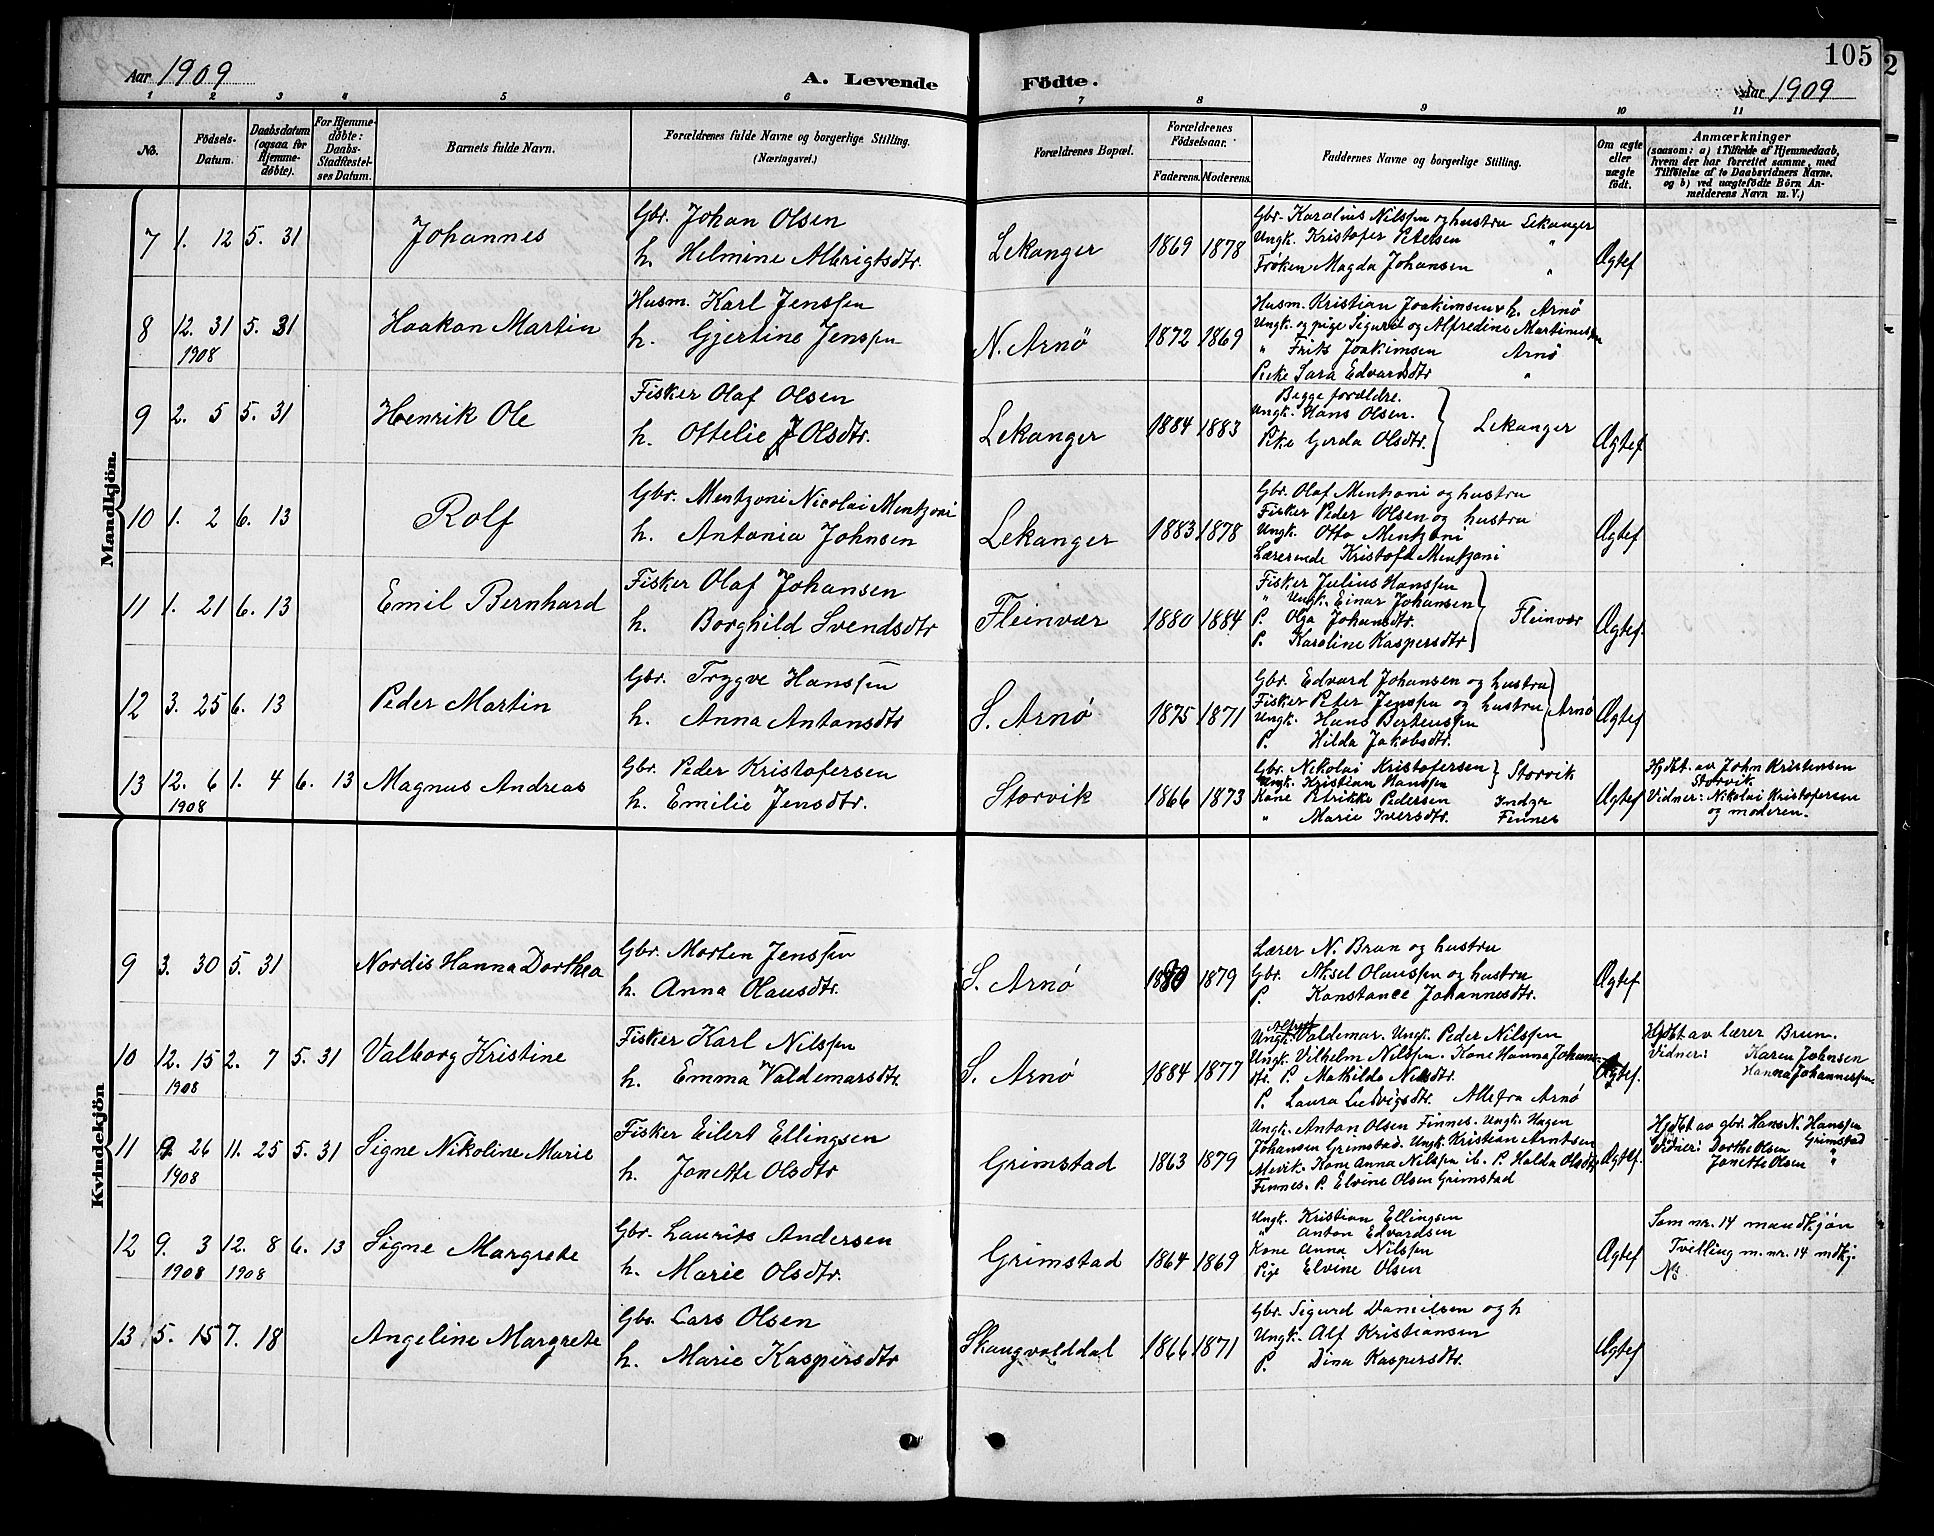 105
2
Aar 1909
A. Levende Födte.
Aar 1909
1 2 3 4 5 6 7 8 9 10 11
No.
Födsels-Datum.
Daabsdatum (ogsaa for Hjemmedöbte).
For Hjemmedöbte: Daabs-Stadfæstelses Datum.
Barnets fulde Navn.
Forældrenes fulde Navne og borgerlige Stilling. (Næringsvei.)
Forældrenes Bopæl.
Forældrenes Födselsaar.
Faderens. Moderens.
Faddernes Navne og borgerlige Stilling.
Om ægte eller uægte födt.
Anmærkninger (saasom: a) i Tilfælde af Hjemmedaab, hvem der har forrettet samme, med Tilföielse af to Daabsvidners Navne. og b) ved uægtefödte Börn Anmelderens Navn m. V.)
Mandkjön.
7 1. 12 5. 31 Johannes
Gbr. Johan Olsen
h. Helmine Albrigtsdtr.
Lekanger 1869 1878
Gbr. Karolius Nilssen og hustru Lekanger
Ungk. Kristofer Petersen "
Frøken Magda Johansen "
Ægtef
8 12. 31 5. 31 Haakon Martin
1908
Husm. Karl Jenssen
h. Gjertine Jenssen
N. Arnö 1872 1869
Husm. Kristian Joakimsen h. Arnö
Ungk. og pige Sigurd og Alfredine Martinussen
" Frits Joakimsen Arnö
Pike Sara Edvardsdtr "
9 2. 5 5. 31 Henrik Ole
Fisker Olaf Olsen
h. Ottelie J Olsdtr.
Lekanger 1884 1883
Begge forældre.
Ungk. Hans Olsen.
Pike Gerda Olsdtr.
Lekanger
Ægtef
10 1. 2 6. 13 Rolf
Gbr. Mentzoni Nicolai Mentzoni
h. Antonia Johnsen
Lekanger 1883 1878
Gbr. Olaf Mentzoni og hustru
Fisker Peder Olsen og hustru
Ungk. Otto Mentzoni
Lærerinde Kristofa Mentzoni
Ægtef
11 1. 21 6. 13 Emil Bernhard
Fisker Olaf Johansen
h. Borghild Svendsdtr
Fleinvær 1880 1884
Fisker Julius Hanssen
" Ungk. Einar Johansen
P. Olga Johansdtr.
P. Karoline Kaspersdtr
Fleinvær
Ægtef.
12 3. 25 6. 13 Peder Martin
Gbr. Trygve Hanssen
h. Anna Antonsdtr
S. Arnö 1875 1871
Gbr. Edvard Johansen og hustru
Fisker Peter Jenssen og hustru
Ungk. Hans Bertenssen
P. Hilda Jakobsdtr.
Arnö
Ægtef
13 12. 6 1. 4 6. 13 Magnus Andreas
1908
Gbr. Peder Kristofersen
h. Emilie Jensdtr.
Storvik 1866 1873
Gbr. Nikolai Kristofersen
Ungk. Kristian Hanssen
Storvik
Kone Petrikke Pedersen Indyr
" Marie Iversdtr. Finnes
Ægtef
Hjdbt. av John Kristensen
Storvik
Vidner: Nikolai Kristofersen
og moderen.
Kvindekjön
9 3. 30 5. 31 Nordis Hanna Dorthea
Gbr. Morten Jenssen
h. Anna Olausdtr.
S. Arnö 1880 1879
Lærer N. Brun og hustru
Gbr. Aksel Olaussen og hustru
P. Konstance Johannesdtr.
Ægtef
10 12. 15 2. 7 5. 31 Valborg Kristine
1908
Fisker Karl Nilssen
h. Emma Valdemarsdtr.
S. Arnö 1884 1877
Ungk. Valdemar. Ungk. Peder Nilssen
Ungk. Vilhelm Nilssen. Kone Hanna Johannes-
dtr. P. Mathilde Nilsdtr.
P. Laura Ludvigsdtr. Alle fra Arnö
Ægtef.
Hjdbt. av lærer Brun.
Vidner: Karen Johnsen
Hanna Johannessen.
11 9. 26 11. 25 5. 31 Signe Nikoline Marie
1908
Fisker Eilert Ellingsen
h. Jonette Olsdtr
Grimstad 1863 1879
Ungk. Anton Olsen Finnes. Ungk. Hagen
Johansen Grimstad. Ungk. Kristian Arntsen
Mevik. Kone Anna Nilssen ib. P. Halda Olsdtr
Finnes. P. Elvine Olsen Grimstad
Ægtef.
Hjdbt av gbr. Hans N. Hanssen
Grimstad
Vidner: Dorthe Olsen "
Jonette Olsen "
12 9. 3 12. 8 6. 13 Signe Margrete
1908 1908
Gbr. Laurits Andersen
h. Marie Olsdtr.
Grimstad 1864 1869
Ungk. Kristian Ellingsen
" Anton Edvardsen
Kone Anna Nilssen
Pige Elvine Olsen
Ægtef
Som nr. 14 mandkjön
Tvilling m. nr. 14 mdkj.
13 5. 15 7. 18 Angeline Margrete
Gbr. Lars Olsen
h. Marie Kaspersdtr
Skaugvolddal 1866 1871
Gbr. Sigurd Danielsen og h
Ungk. Alf Kristiansen
P. Dina Kaspersdtr.
Ægtef